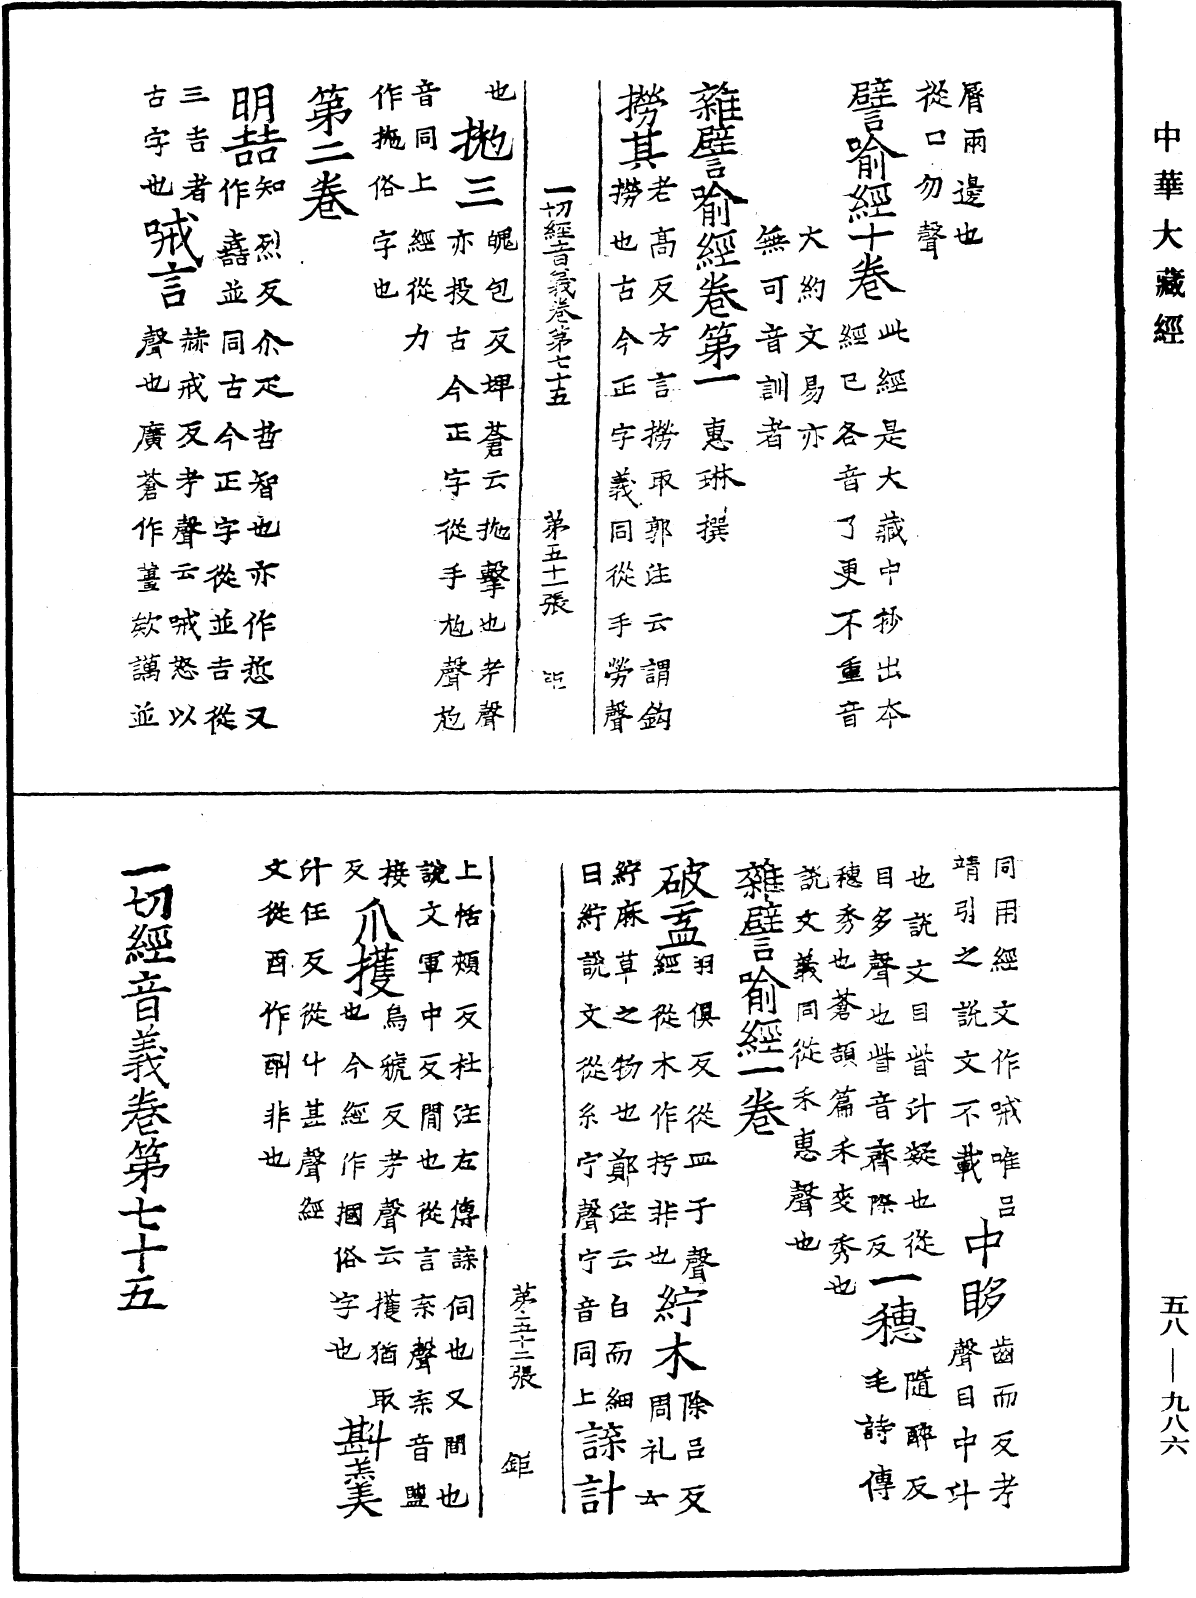 中華大藏經
脣兩邊也
從口勿聲
譬喻經十卷 此經是大藏中抄出本
經已各音了更不重音
大約文易亦
無可音訓者
雜譬喻經卷第一 惠琳撰
撈其 老高反方言撈取郭注云謂鈎
撈也古今正字義同從手勞聲
一切經音義卷第七十五 第五十一張
也 拋三 魄包反埤蒼云拋擊也考聲
云亦投古今正字從手尥聲尥
音同上經從力
作拋俗字也
第二卷
明喆 知烈反尒疋哲智也亦作悊又
作嚞並同古今正字從並吉從
三吉者
古字也 喊言 赫戒反考聲云喊怒以
聲也廣蒼作䜕欸講並
同用經文作喊唯吕
靖引之說文不載 中眵 齒而反考
聲目中汁
也說文目眥汁凝也從
目多聲也眥音齊際反 一穗 隨醉反
毛詩傳
穗秀也蒼頡篇禾麥秀也
說文義同從禾惠聲也
雜譬喻經一卷
破盂 羽俱反從皿于聲
經從木作杅非也 紵木 除吕反
周礼云
紵麻草之物也鄭注云白而細
曰紵說文從糸宁聲宁音同上 諜計
第五十二張 鉅
上恬頰反杜注左傳諜伺也又間也
說文軍中反間也從言枼聲枼音鹽
接反 爪擭 烏虢反考聲云擭猶取
也今經作摑俗字也 斟羹
汁任反從斗甚聲經
文從酉作酙非也
一切經音義卷第七十五
五八—九八六